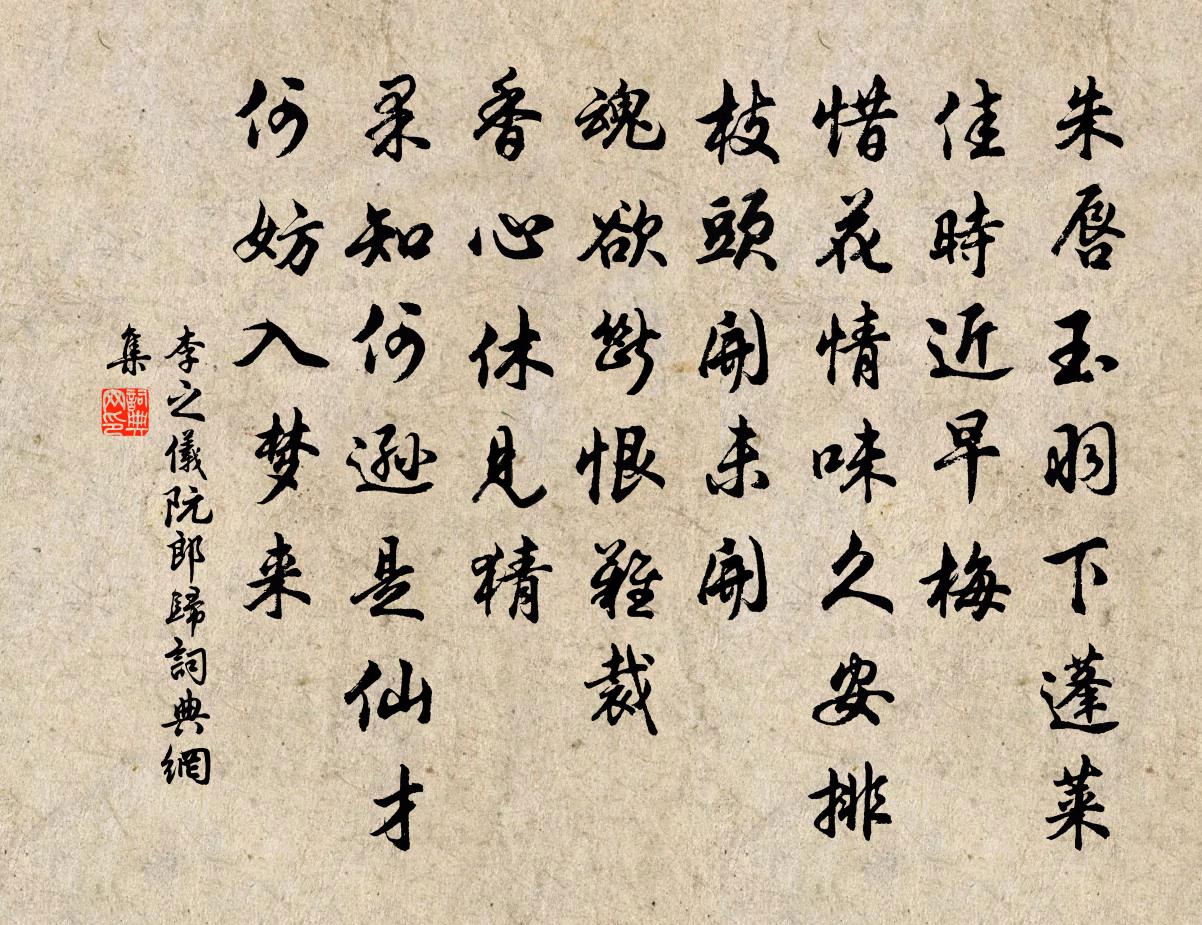 朱唇玉羽下蓬莱
佳時近早梅
惜花情味久安排
枝頭開未開
魂欲斷恨難裁
香心休見猜
果知何遜是仙才
何妨入梦来
李之儀阮郎歸詞典網
集
詞典网印